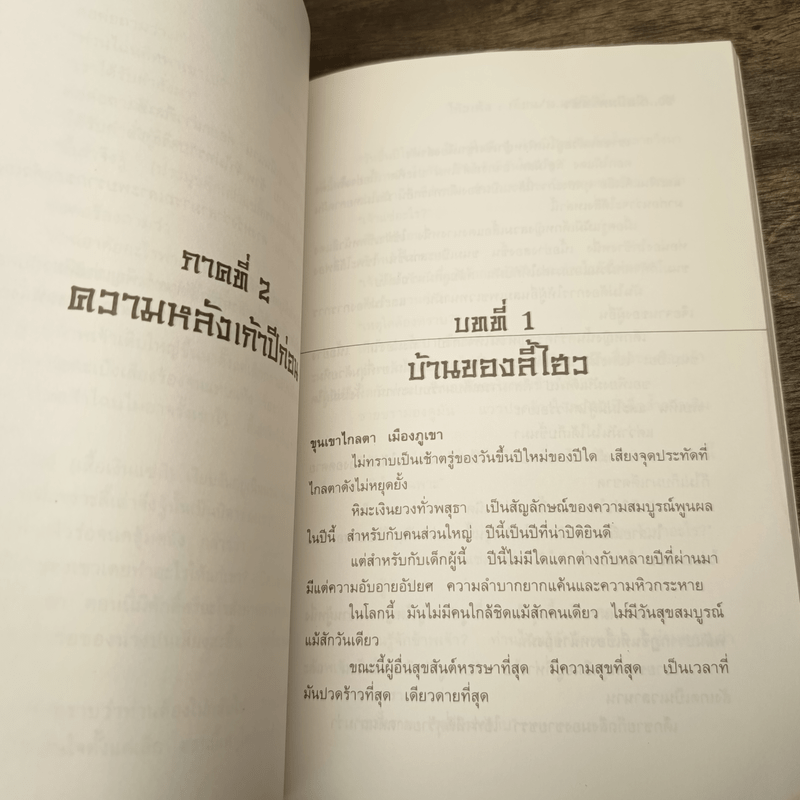 ภาคที่ 2
ความหลังเก้าปีก่อน
บทที่ 1
บ้านของลี้ไฮว
ขุนเขาไกลตา เมืองภูเขา
ไม่ทราบเป็นเช้าตรู่ของวันขึ้นปีใหม่ของปีใด เสียงจุดประทัดที่
ไกลตาดังไม่หยุดยั้ง
หิมะเงินยวงทั่วพสุธา เป็นสัญลักษณ์ของความสมบูรณ์พูนผล
ในปีนี้ สำหรับกับคนส่วนใหญ่ ปีนี้เป็นปีที่น่าปิติยินดี
แต่สำหรับกับเด็กผู้นี้ ปีนี้ไม่มีใดแตกต่างกับหลายปีที่ผ่านมา
มีแต่ความอับอายอัปยศ ความลำบากยากแค้นและความหิวกระหาย
ในโลกนี้ มันไม่มีคนใกล้ชิดแม้สักคนเดียว ไม่มีวันสุขสมบูรณ์
แม้สักวันเดียว
ขณะนี้ผู้อื่นสุขสันต์หรรษาที่สุด มีความสุขที่สุด เป็นเวลาที่
มันปวดร้าวที่สุด เดียวดายที่สุด